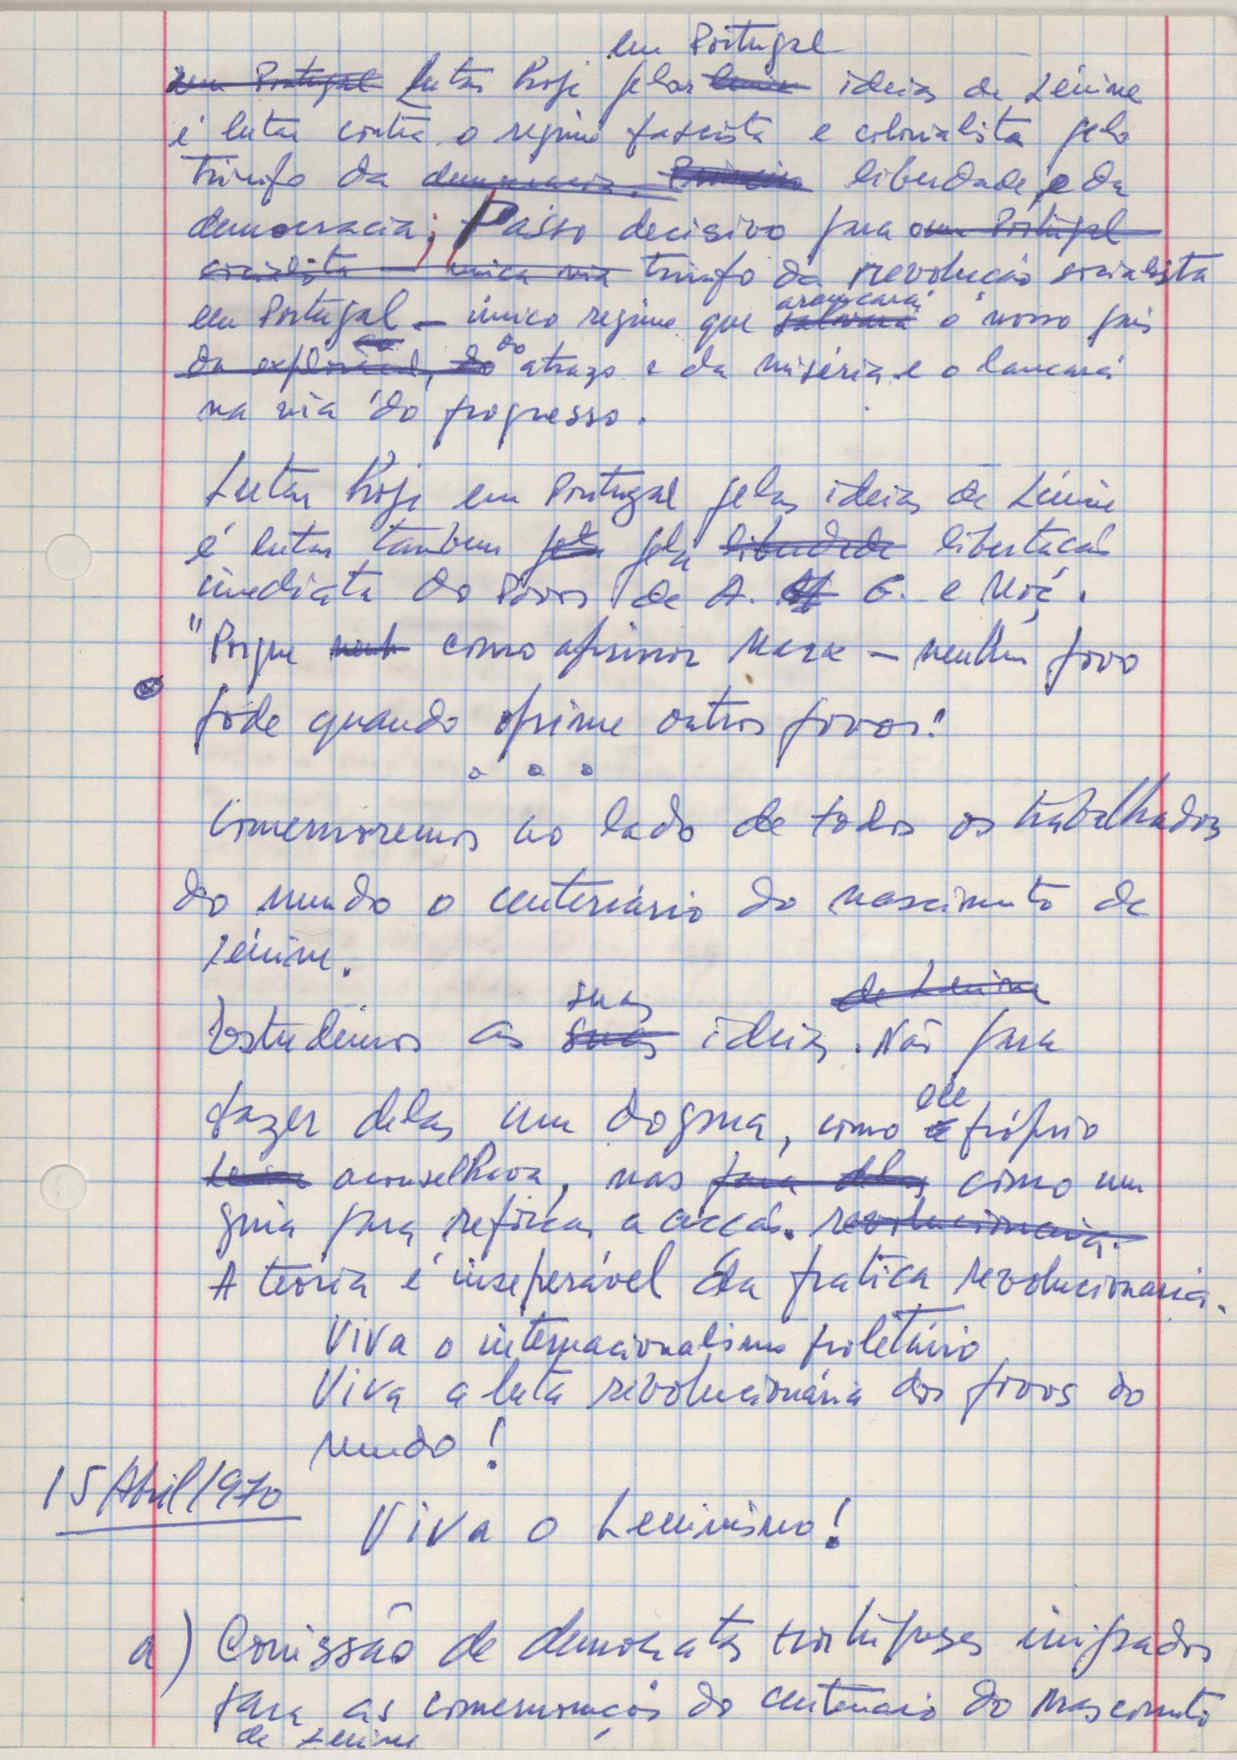 em Portugal
em Portugal Lutar hoje pelas ideias de Lénine
é lutar contra o regime fascista e colonialista pelo
triunfo da democracia. liberdade e da
democracia; Passo decisivo para o um Portugal
socialista — única via triunfo da revolução socialista
em Portugal — único regime que salvará arancará o nosso país
da exploração, do do atrazo e da miséria e o lancará
na via do progresso.
Lutar hoje em Portugal pelas ideias de Lénine
é lutar tambem pela pela liberdade libertacão
imediata do Povos de A. G. e Moç.
"Porque como afirmou Marx — nenhum povo
póde quando oprime outros povos!
o o o
Comemoremos ao lado de todos os trabalhadores
do mundo o centenário do nascimento de
Lénine.
suas de Lenine
Estudêmos as suas ideias. Não para
fazer delas um dogma, como ele próprio
Lenine aconselhava, mas para delas como um
guia para reforcar a accão. revolucionaria.
A teoria é inseperável da pratica revolucionaria.
Viva o internacionalismo proletário
Viva a luta revolucionária dos povos do
mundo!
15/Abril/1970
Viva o Leninismo!
a) Comissão de democratas portugueses imigrados
para as comemoraçõs do centenario do nascimento
de Lenine